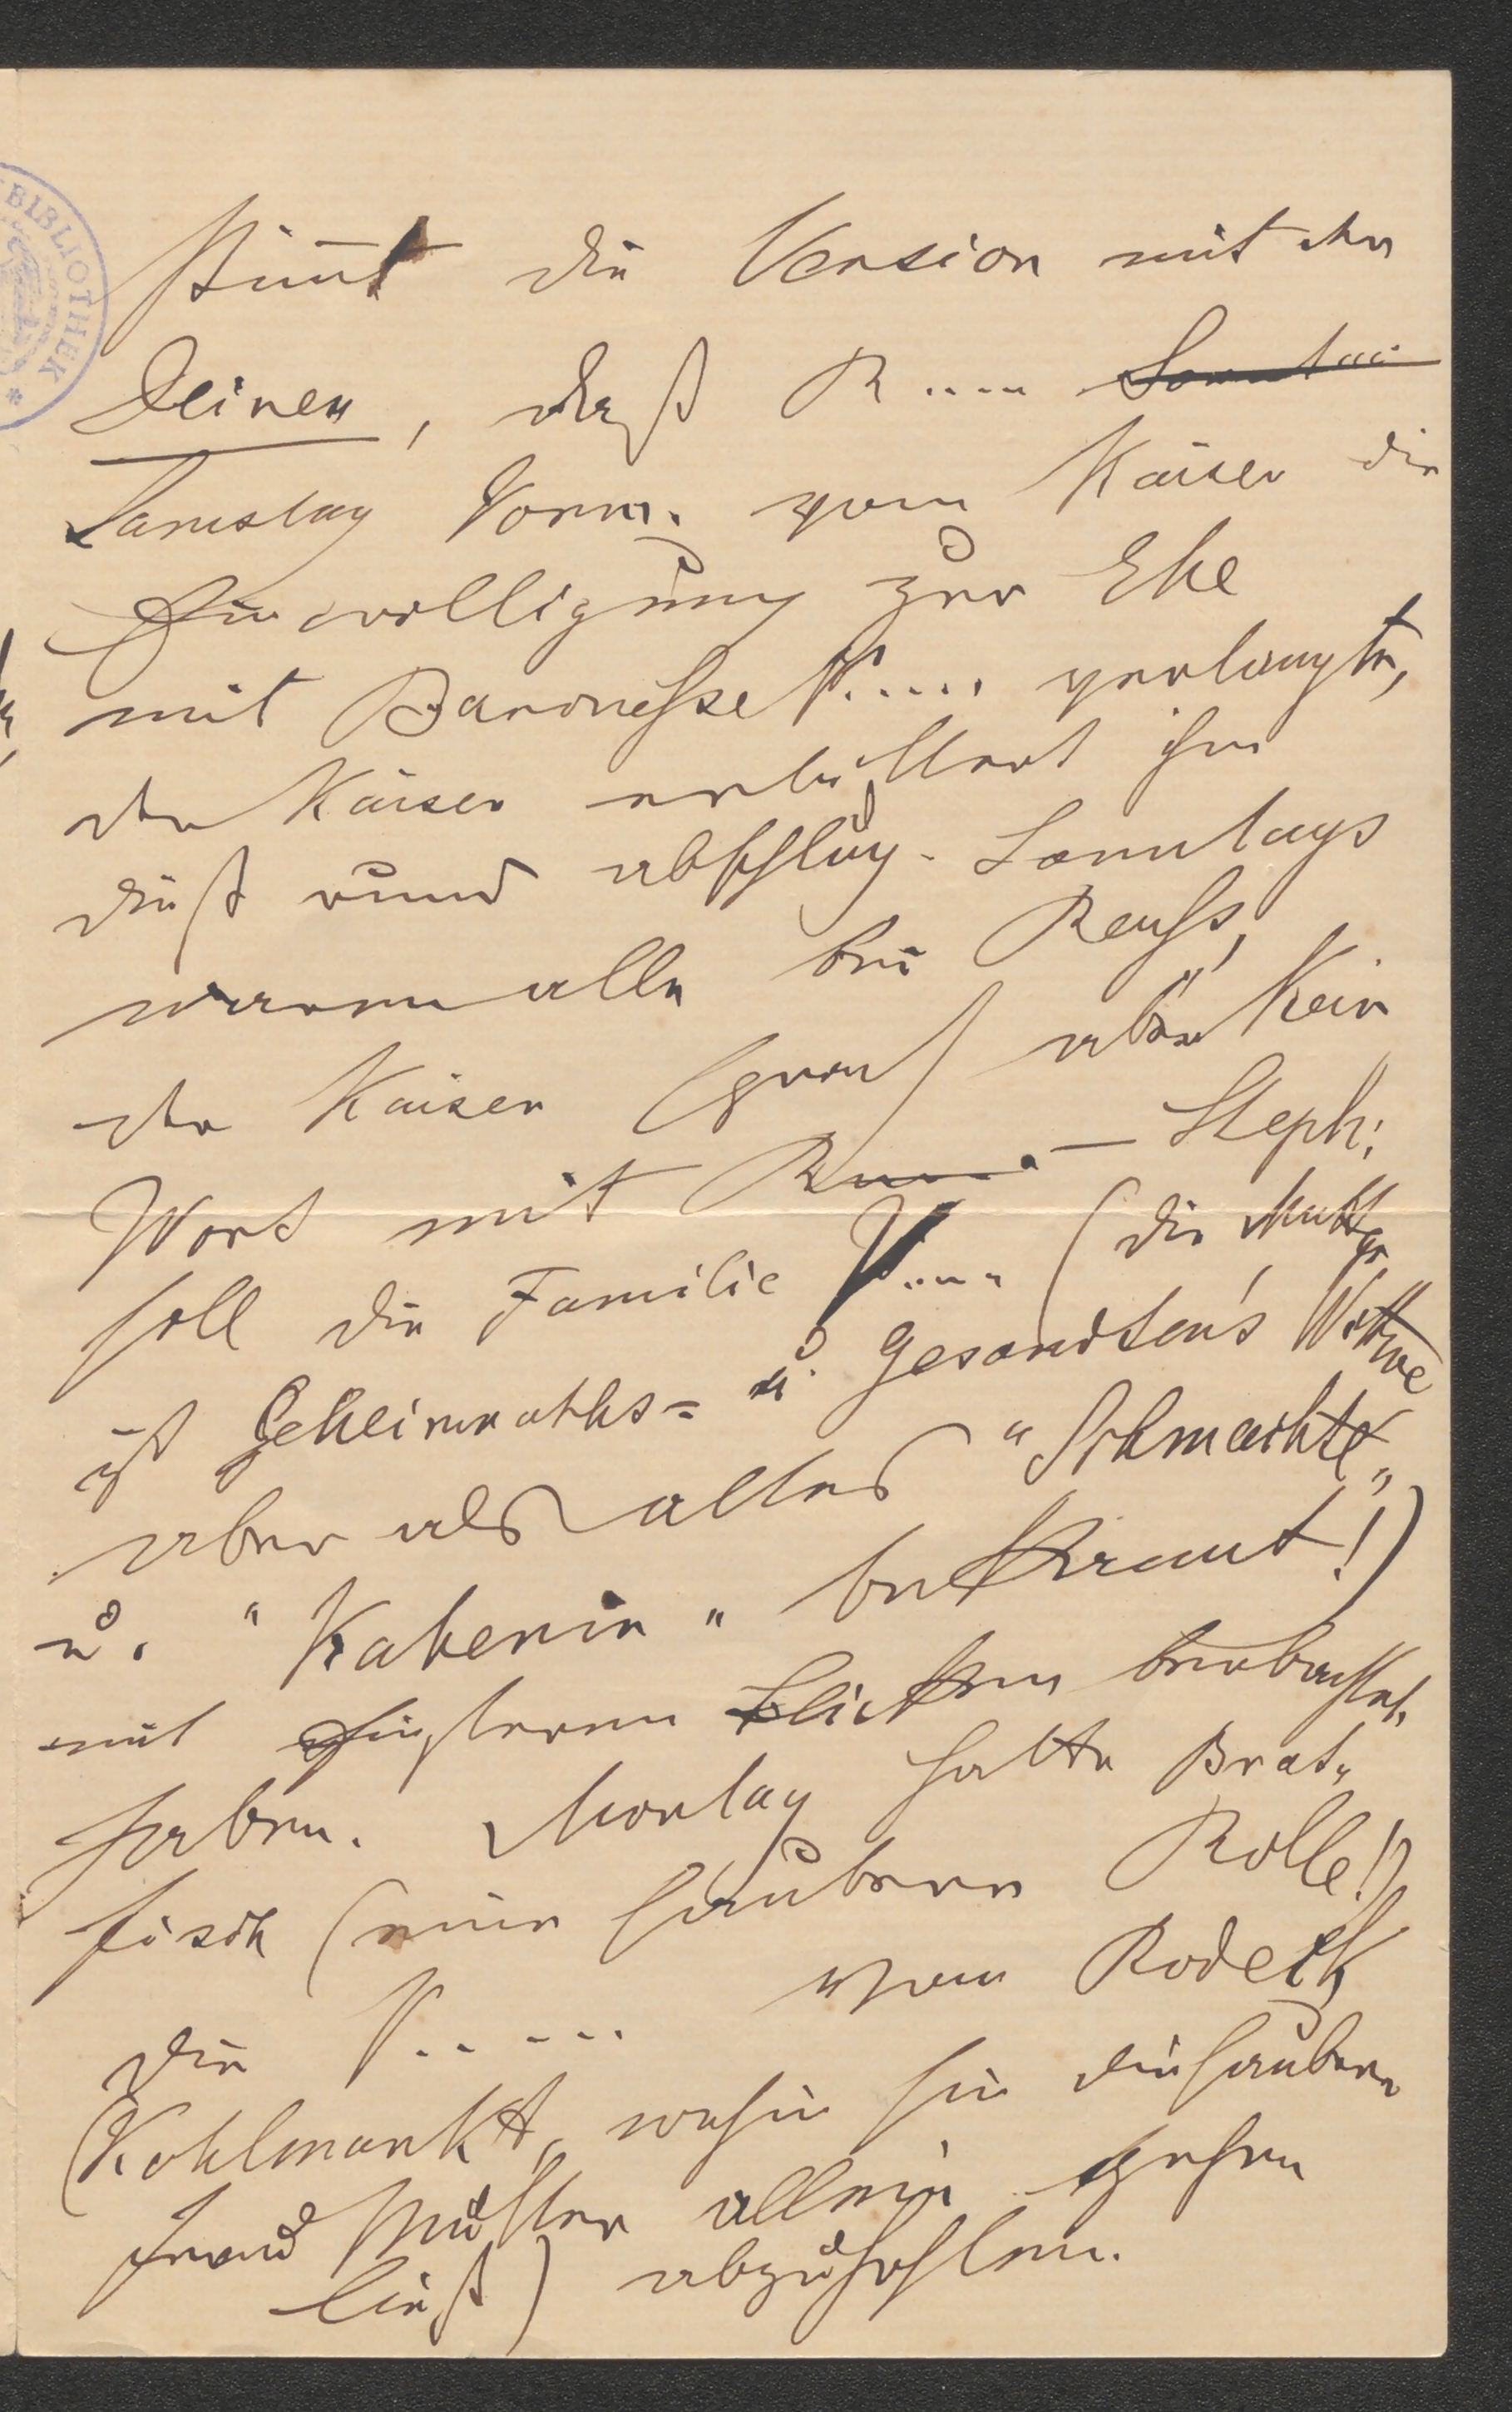 BIBLIOTHEK *
stimmt die Version mit der
Deinen, daß R.... Sonntag
Samstag Vorm. vom Kaiser die
Einwilligung zur Ehe
mit Baronesse V..... verlangte,
der Kaiser erbittert ihm
dieß rund abschlug. Sonntags
waren alle bei Reuss,
der Kaiser sprach aber kein
Wort mit R — Steph:
soll die Familie V.... (die Mutter
ist Geheimraths= u. Gesandten's Wittwe
aber als altes "Schmachte"
u. " " bekannt!)
mit finsteren Blicken beobachtet
haben. Montag hatte Brat„
fisch (eine saubere Rolle!)
die V..... vom Rodeck
(Kohlmarkt, wohin sie die saubere
Frau Mutter allein gehen
ließ) abzuhohlen.